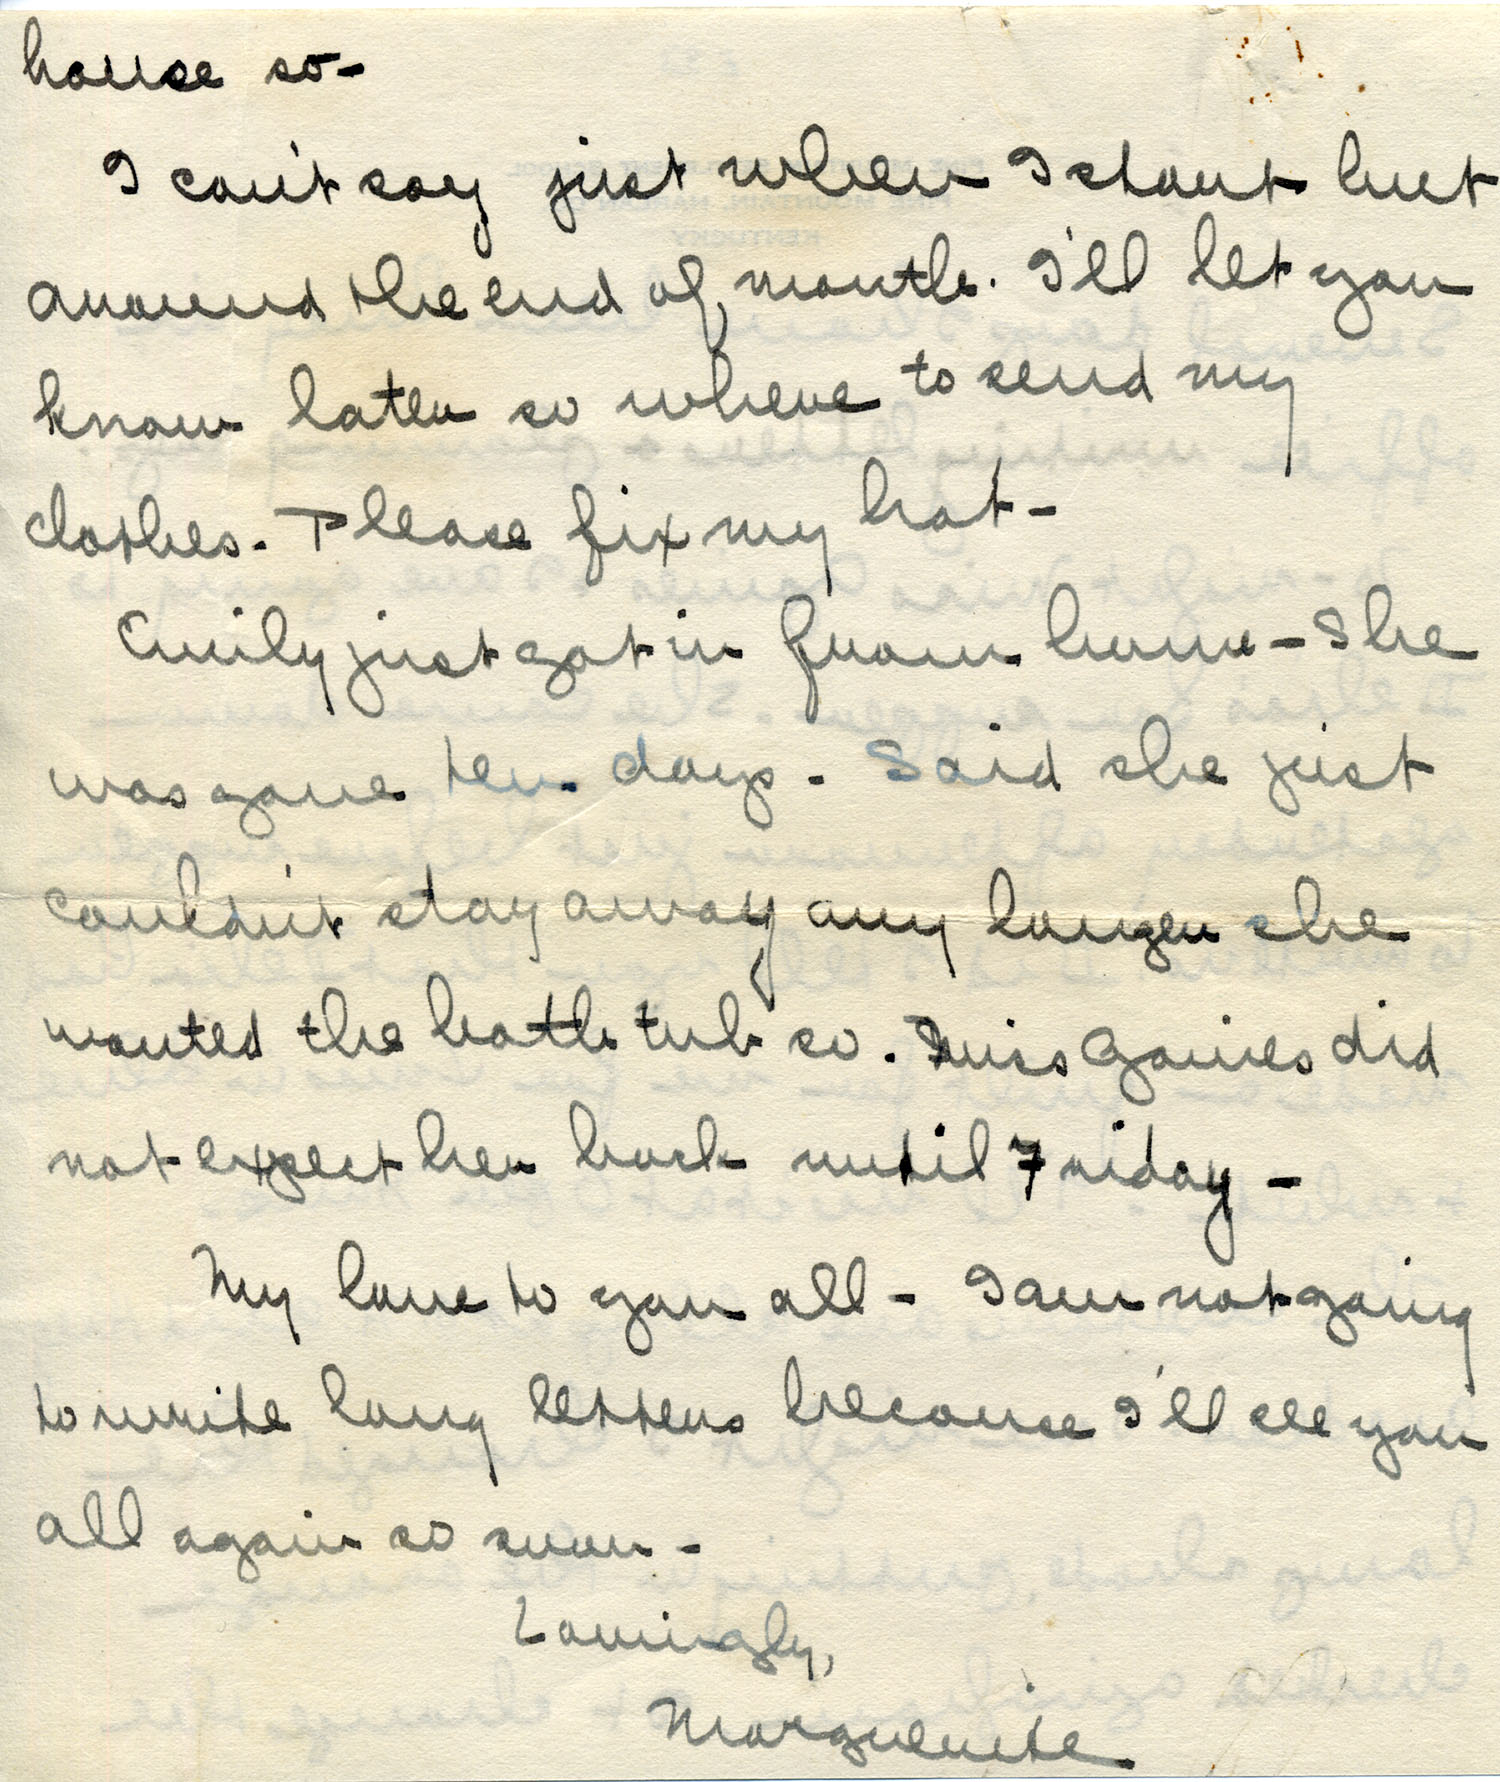 house so-
I can't say just when I start but
around the end of month. I'll let you
know later so where to send my
clothes. Please fix my hat-
Emily just got in from home - She
was gone ten days. Said she just
couldn't stay away any longer she
wanted the bath tub so. Miss Gaines did
not expect her back until Friday -
My love to you all - I am not going
to write long letters because I'll see you
all again so soon -
Lovingly,
Marguerite